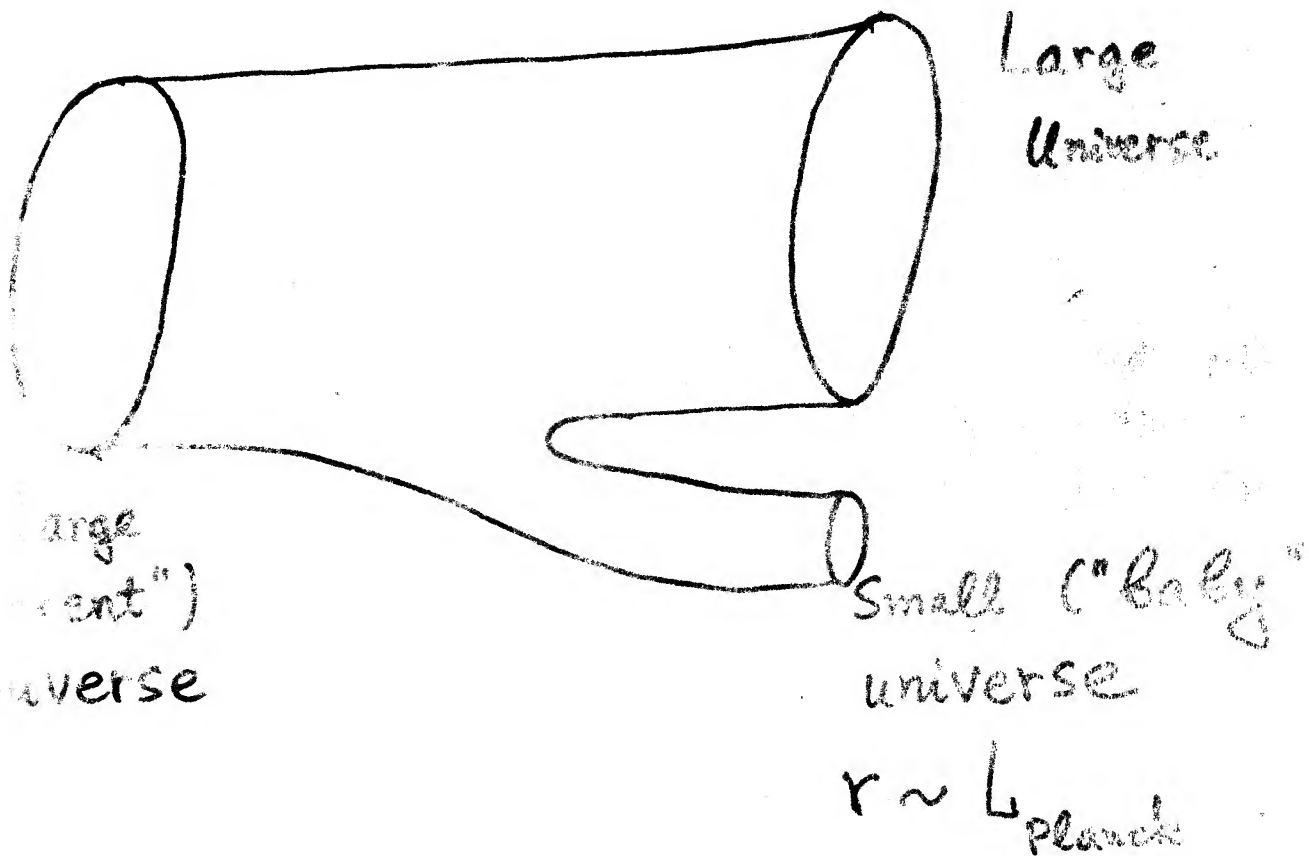 Large
Universe
arge
rent")
verse
Small ("Baby"
universe
r ~ L Planck